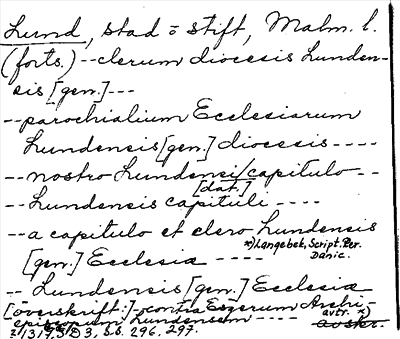 Lund, stad o stift, Malm. l.
(forts.) --clerum diocesis Lunden-
sis [gen.]---
--parochialium Ecclesiarum
Lundensis [gen.] diocesis ----
--nostro Lundensi/capitulo--
[dat.]
--Lundensis capituli ----
--a capitulo et clero Lundensis
*) Langebek, Script. Rer.
[gen.] Ecclesia ----
Danic.
-- Lundensis [gen.] Ecclesia
[överskrift:]-contra Esgerum Archi-
episcopum Lundensem ----
avtr. *)
avskr.
1317, SD 3, s.s. 296, 297.